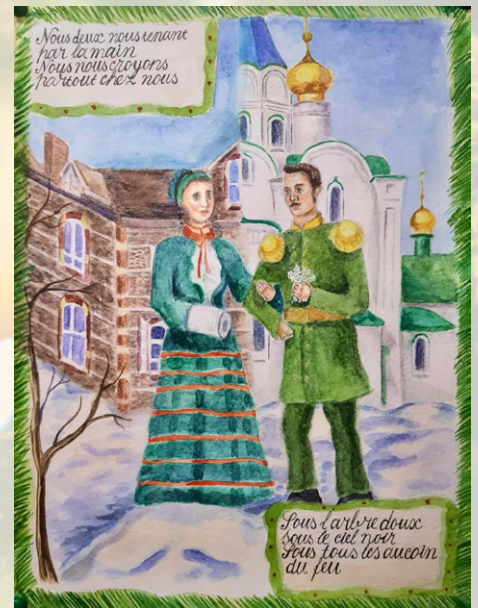 Nous deux nous tenant
par la main
Nous nous croyons
partout chez nous
Sous l'arbre doux
sous le ciel noir
Sous tous les aucoin
du feu